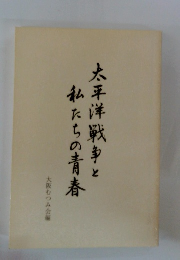 太平洋戦争と
私たちの青春
大阪むつみ会編